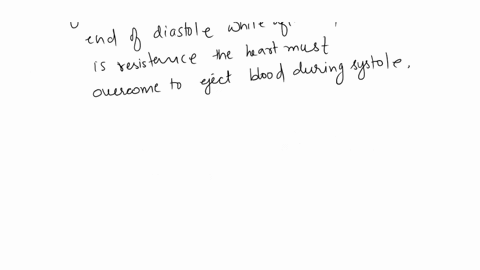 end of diastole while
is resistance the heart must
overcome to eject blood during systole.